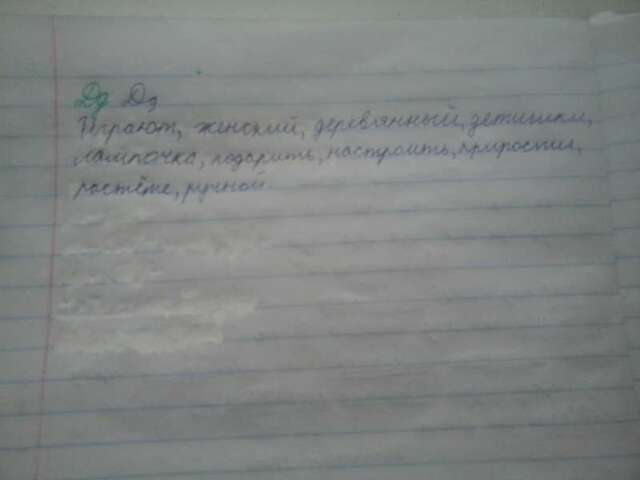 Дд Дд
Играют, женский, деревянный, детишки,
лампочка, подарить, настроить, прирости,
растёте, ручной.